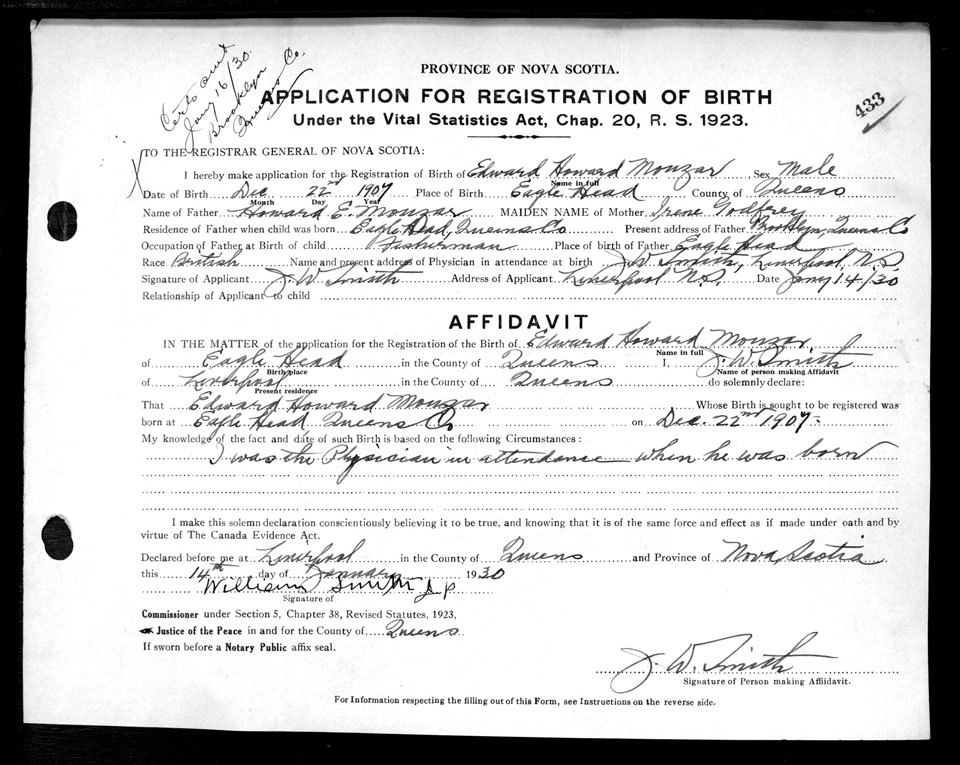 Certs out
Jany 16/30.
Brooklyn
Queens Co.
PROVINCE OF NOVA SCOTIA.
APPLICATION FOR REGISTRATION OF BIRTH
Under the Vital Statistics Act, Chap. 20, R. S. 1923.
433
TO THE REGISTRAR GENERAL OF NOVA SCOTIA:
I hereby make application for the Registration of Birth of Edward Howard Mouzar Sex Male
Name in full
Date of Birth Dec 22nd 1907 Place of Birth Eagle Head County of Queens
Month Day Year
Name of Father Howard E. Mouzar MAIDEN NAME of Mother Irene Godfrey
Residence of Father when child was born Eagle Head, Queens Co Present address of Father Brooklyn, Queens Co
Occupation of Father at Birth of child Fisherman Place of birth of Father Eagle Head
Race British Name and present address of Physician in attendance at birth J. W. Smith, Liverpool, N.S.
Signature of Applicant J. W. Smith Address of Applicant Liverpool N.S. Date Jany 14/30
Relationship of Applicant to child
AFFIDAVIT
IN THE MATTER of the application for the Registration of the Birth of Edward Howard Mouzar
Name in full
of Eagle Head in the County of Queens I, J. W. Smith
Birth place Name of person making Affidavit
of Liverpool in the County of Queens do solemnly declare:
Present residence
That Edward Howard Mouzar Whose Birth is sought to be registered was
born at Eagle Head Queens Co on Dec. 22nd 1907.
My knowledge of the fact and date of such Birth is based on the following Circumstances:
I was the Physician in attendance when he was born
I make this solemn declaration conscientiously believing it to be true, and knowing that it is of the same force and effect as if made under oath and by
virtue of The Canada Evidence Act.
Declared before me at Liverpool in the County of Queens and Province of Nova Scotia
this 14th day of January 1930
William Smith J P
Signature of
Commissioner under Section 5, Chapter 38, Revised Statutes, 1923,
Justice of the Peace in and for the County of Queens
If sworn before a Notary Public affix seal.
J. W. Smith
Signature of Person making Affidavit.
For Information respecting the filling out of this Form, see Instructions on the reverse side.